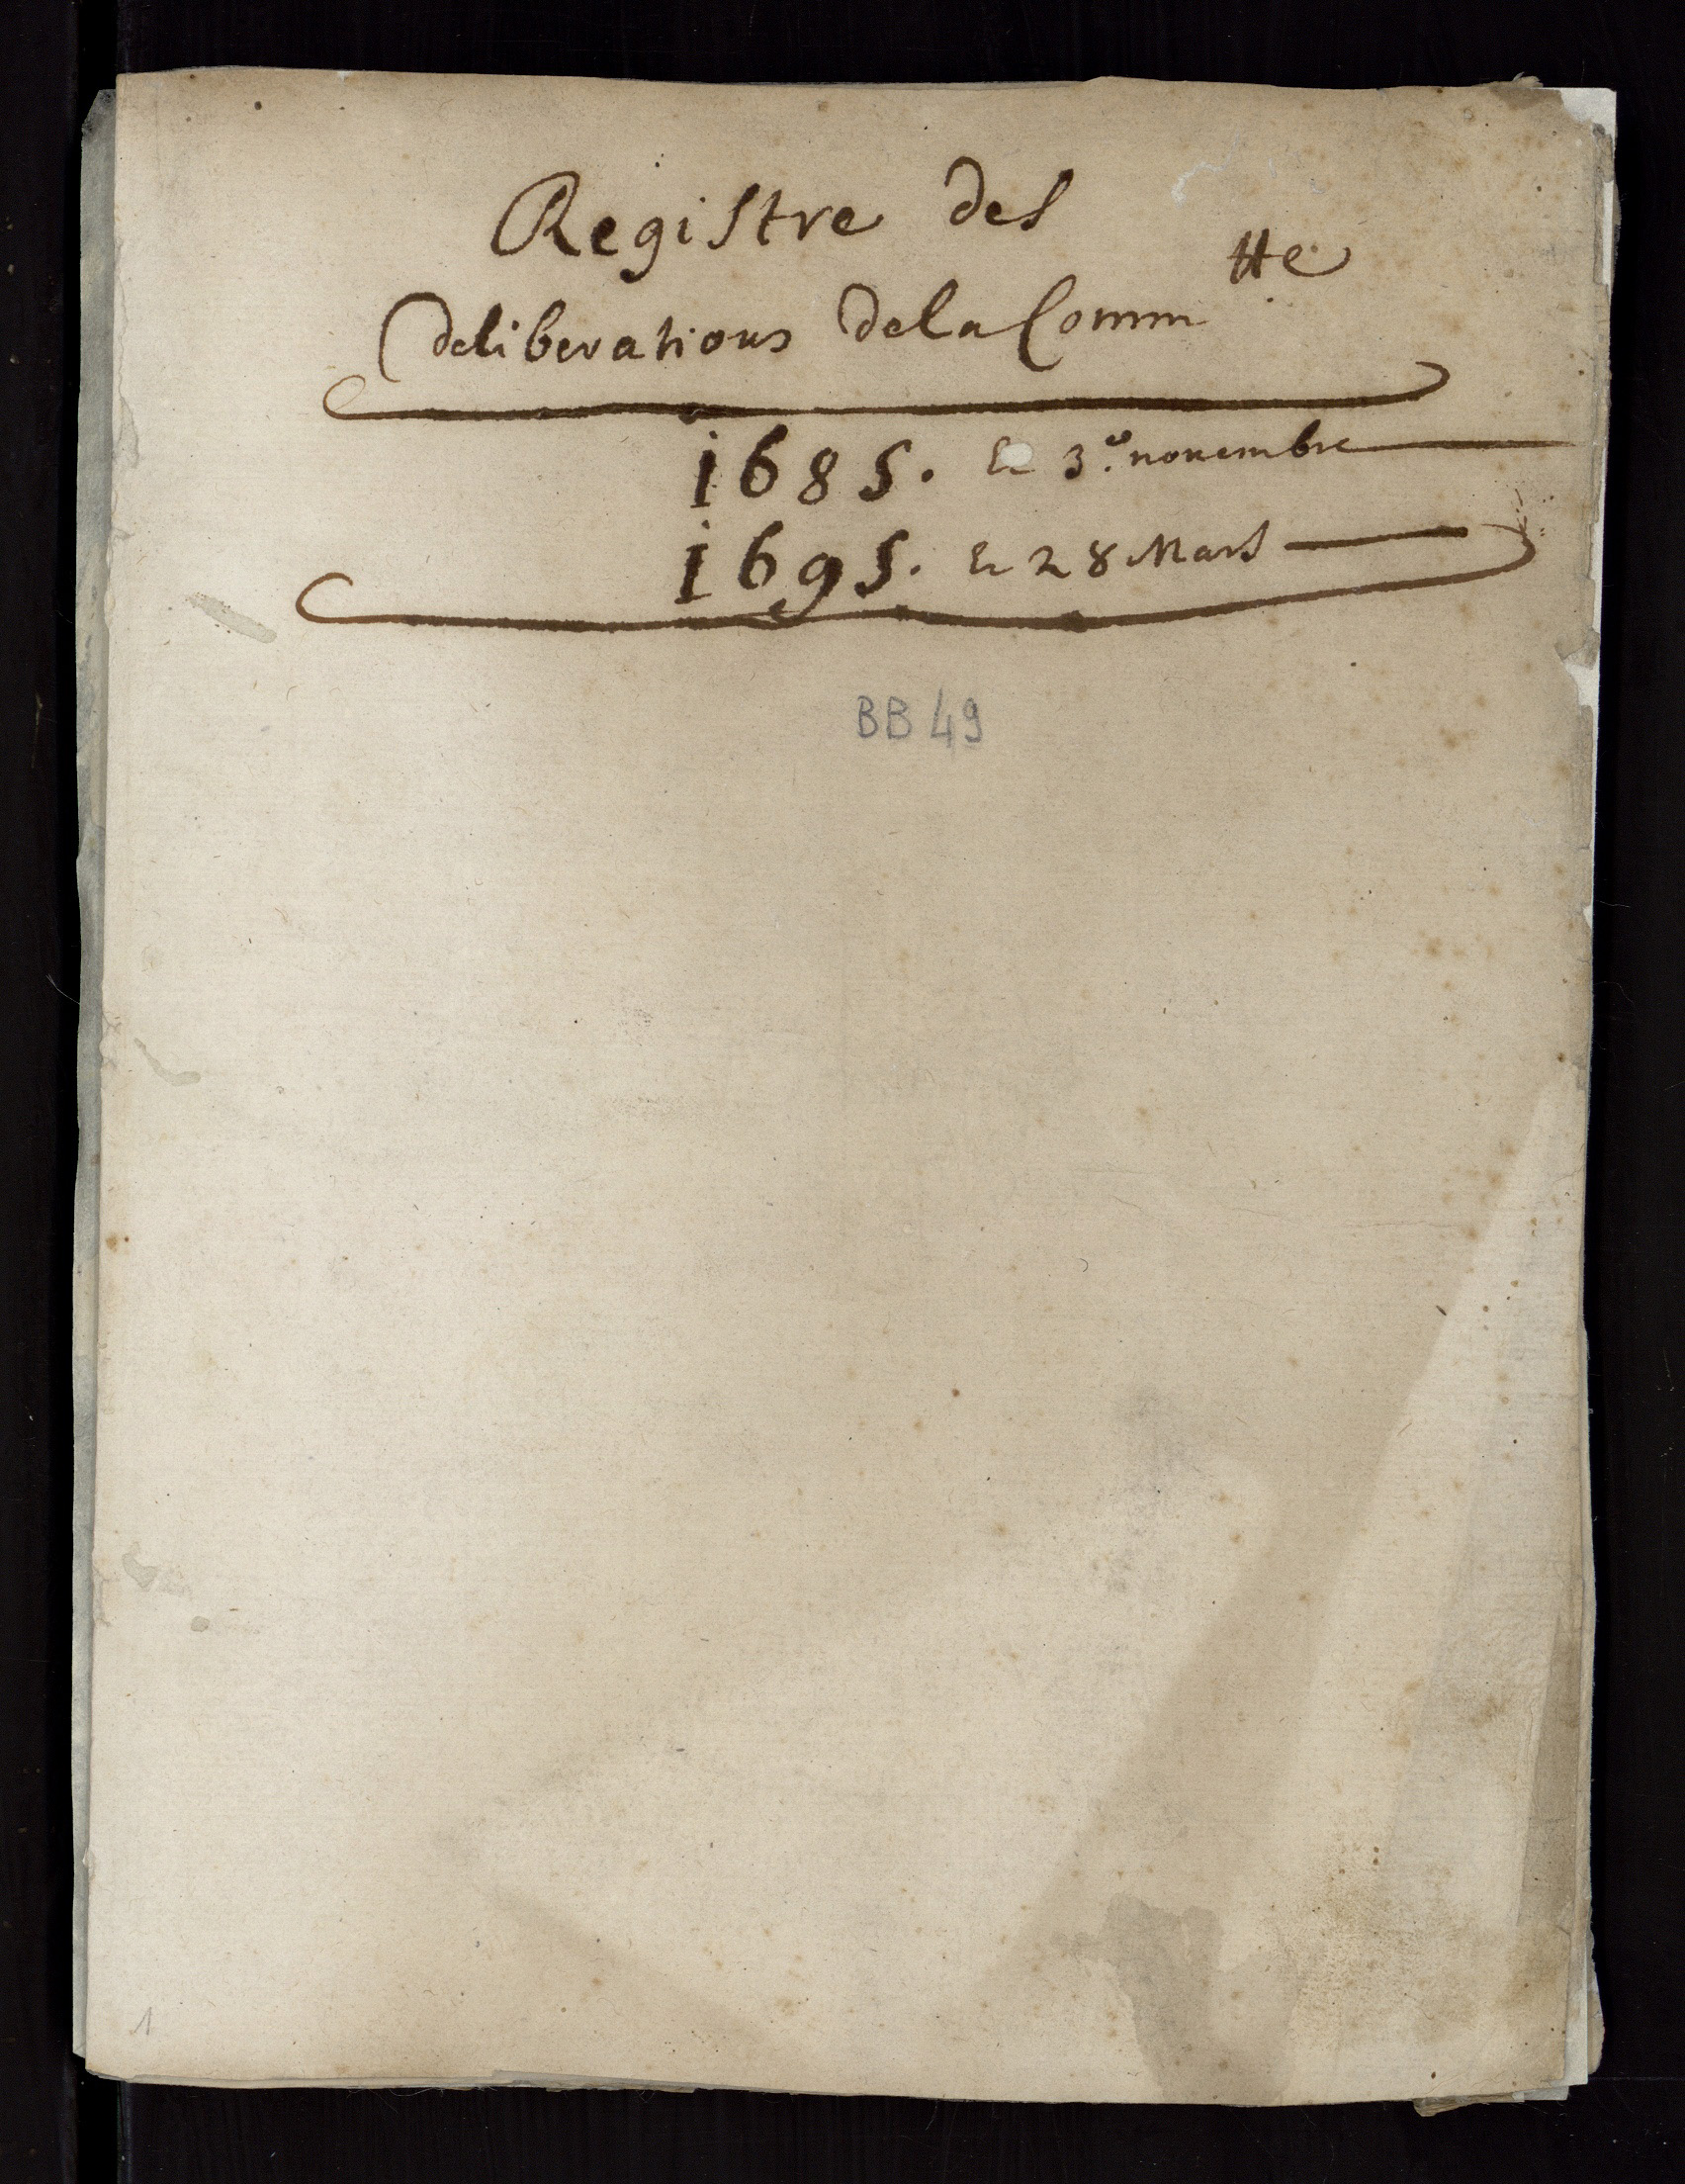 Registre des
deliberations de la Comm^tte
1685. Le 3e. nouembre
1695. Le 28 Mars
BB 49
1